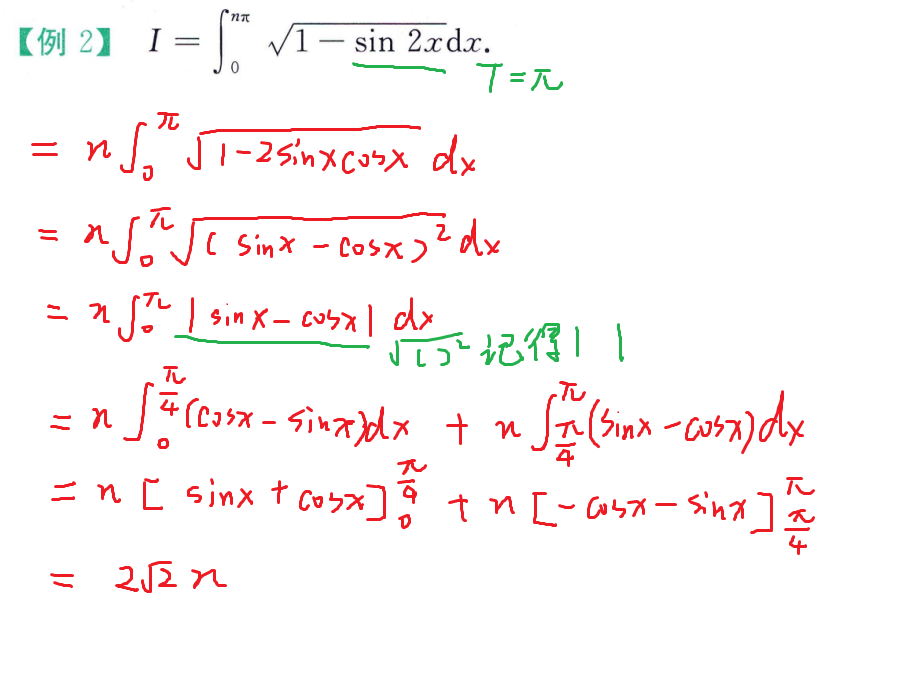 【例 2】 I = ∫₀^{nπ} √(1 − sin 2x) dx.
T = π
= n ∫₀^π √(1−2sinxcosx) dx
= n ∫₀^π √((sinx − cosx)²) dx
= n ∫₀^π |sinx − cosx| dx
√( )² 记得| |
= n ∫₀^{π/4} (cosx − sinx)dx + n ∫_{π/4}^π (sinx − cosx)dx
= n [sinx + cosx]₀^{π/4} + n [−cosx − sinx]_{π/4}^π
= 2√2 n